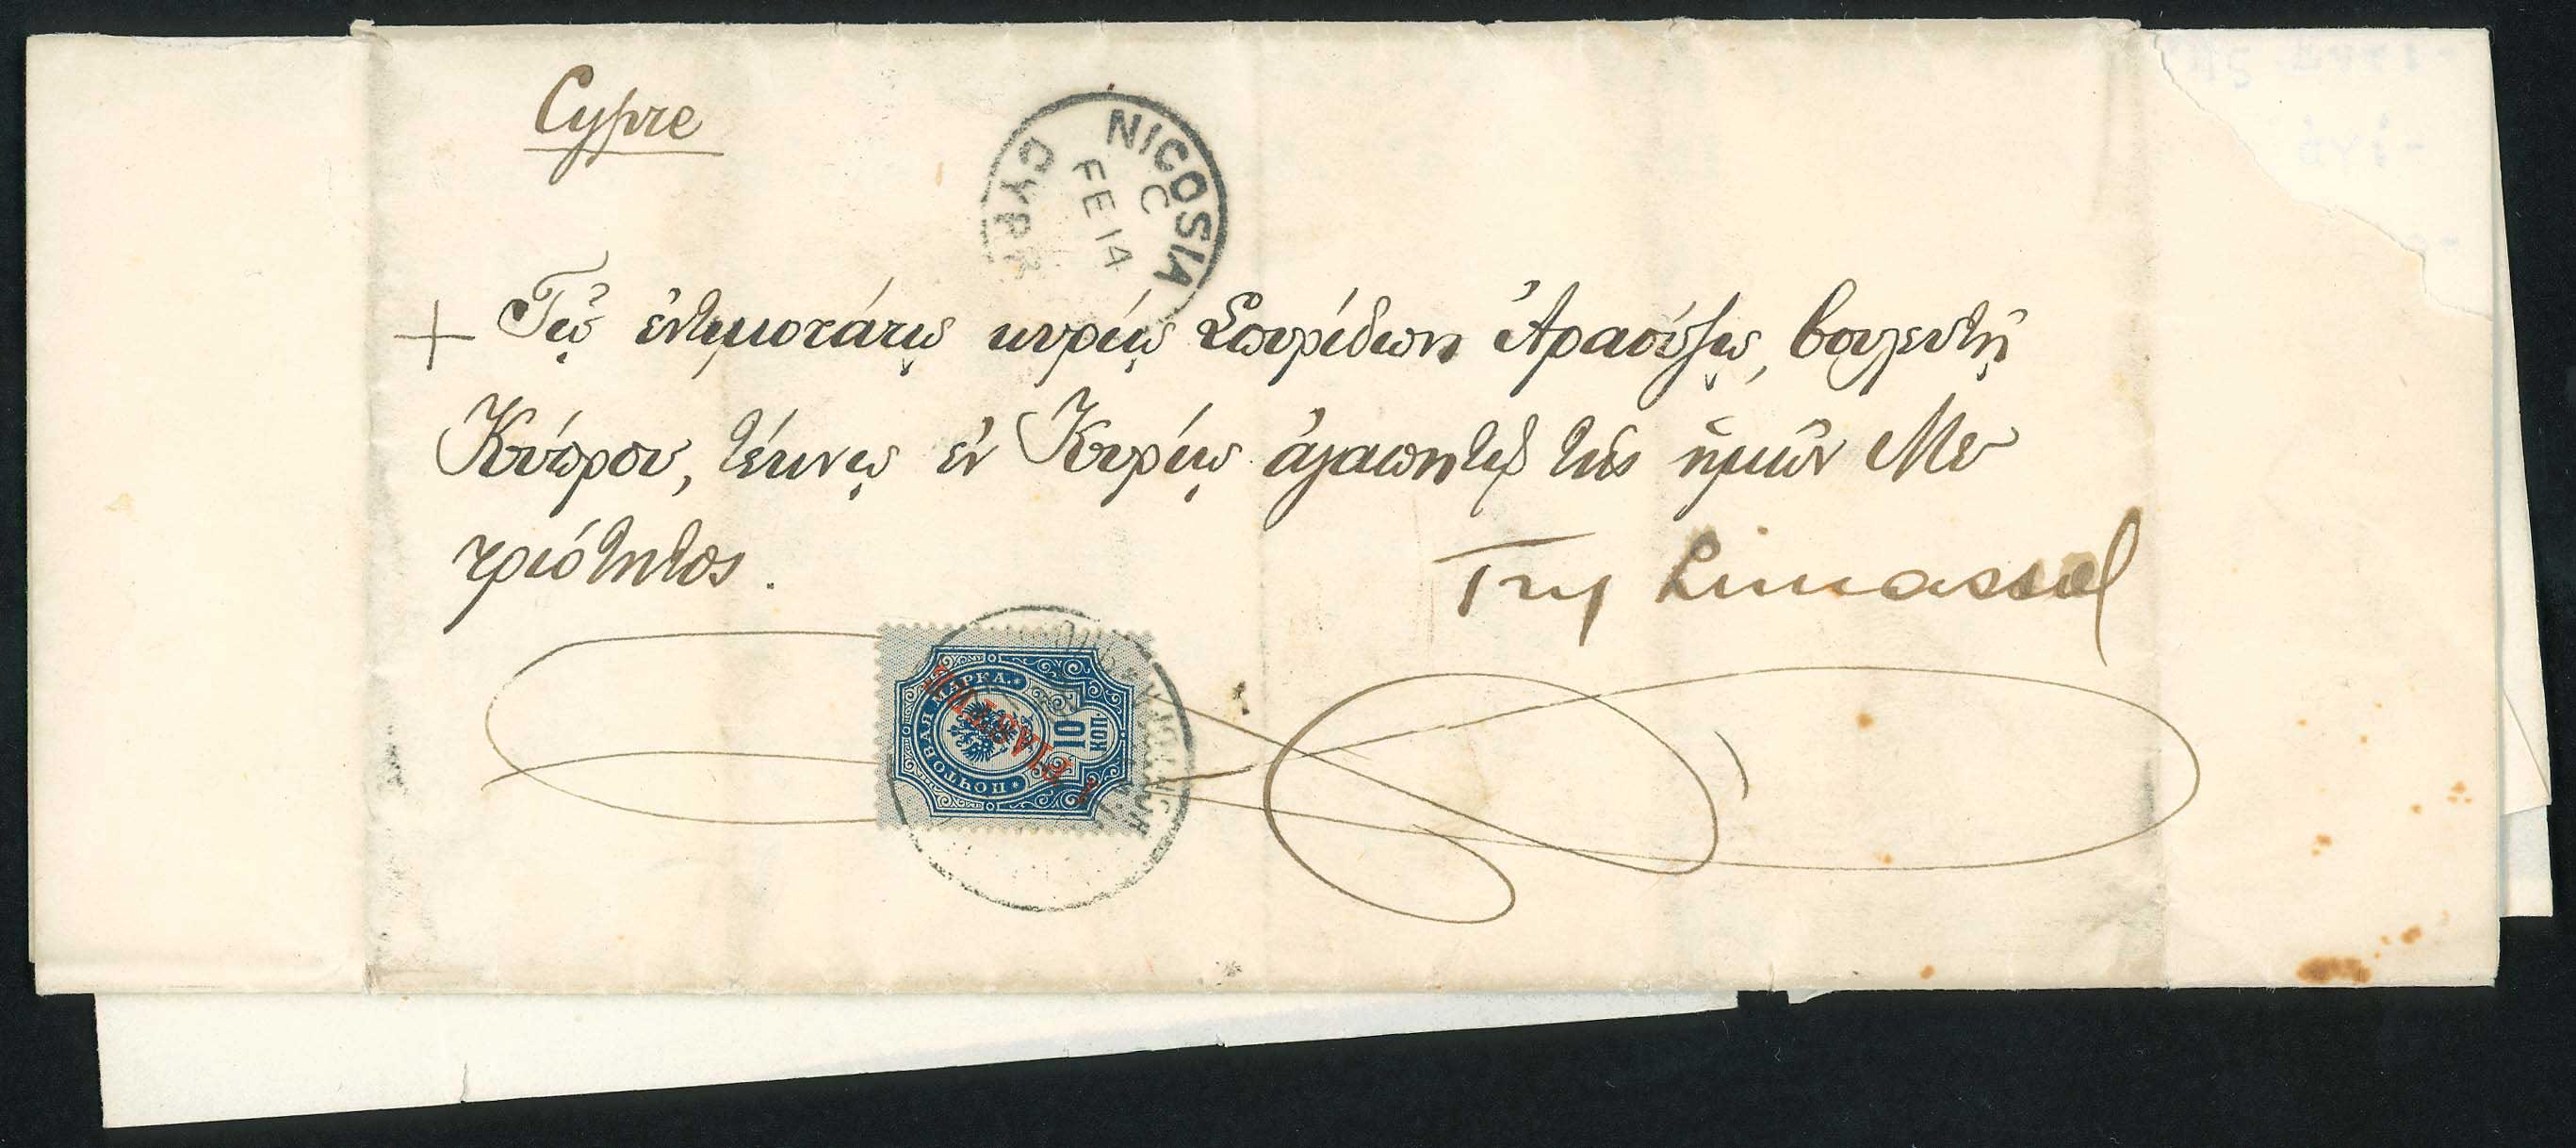 Cypre
NICOSIA
C
FE 14
CYPR
+ Τῷ ἐντιμοτάτῳ κυρίῳ Σπυρίδωνι Ἀραούζῳ, βουλευτῇ
Κύπρου, τέκνῳ ἐν Κυρίῳ ἀγαπητῷ τῆς ἡμῶν Με
τριότητος.
Try Limassol
ПОЧТОВАЯ МАРКА.
10
КОП.